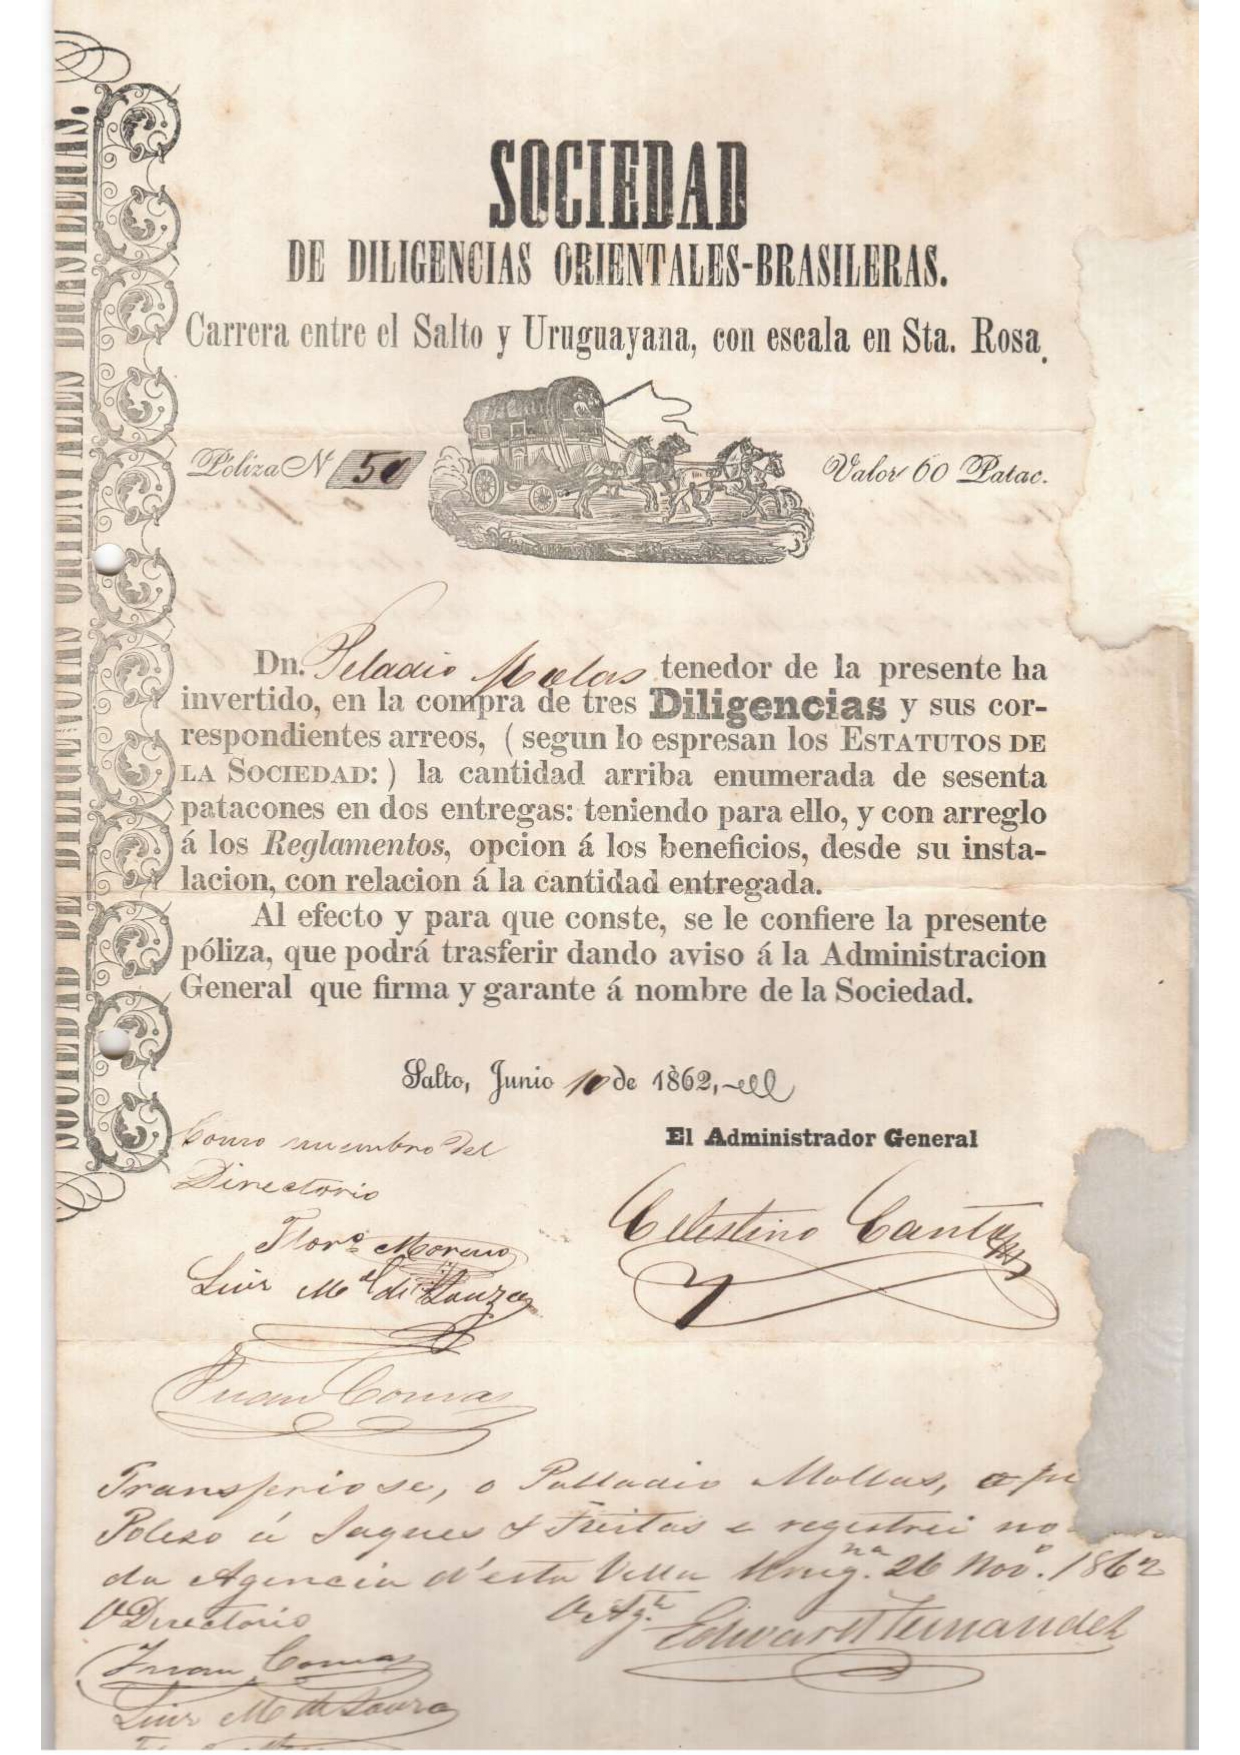 SOCIEDAD DE DILIGENCIAS ORIENTALES BRASILERAS.
SOCIEDAD
DE DILIGENCIAS ORIENTALES-BRASILERAS.
Carrera entre el Salto y Uruguayana, con escala en Sta. Rosa.
Póliza Nº 50
Valor 60 Patac.
Dn. Peladio Molas tenedor de la presente ha
invertido, en la compra de tres Diligencias y sus cor-
respondientes arreos, ( segun lo espresan los ESTATUTOS DE
LA SOCIEDAD: ) la cantidad arriba enumerada de sesenta
patacones en dos entregas: teniendo para ello, y con arreglo
á los Reglamentos, opcion á los beneficios, desde su insta-
lacion, con relacion á la cantidad entregada.
Al efecto y para que conste, se le confiere la presente
póliza, que podrá trasferir dando aviso á la Administracion
General que firma y garante á nombre de la Sociedad.
Salto, Junio 10 de 1862,
El Administrador General
Como miembro del
Directorio
Celestino Canta
Floro Moreno
Luis Mel di Souza
Juan Comas
Transferiose, o Palladio Mollas, a
Poleza á Jaques & Freitas e registrei no
da Agencia d'esta Villa Urugna. 26 Novo. 1862
O Directorio
O Agte Edward Fernandez
Juan Comas
Luis M di Souza